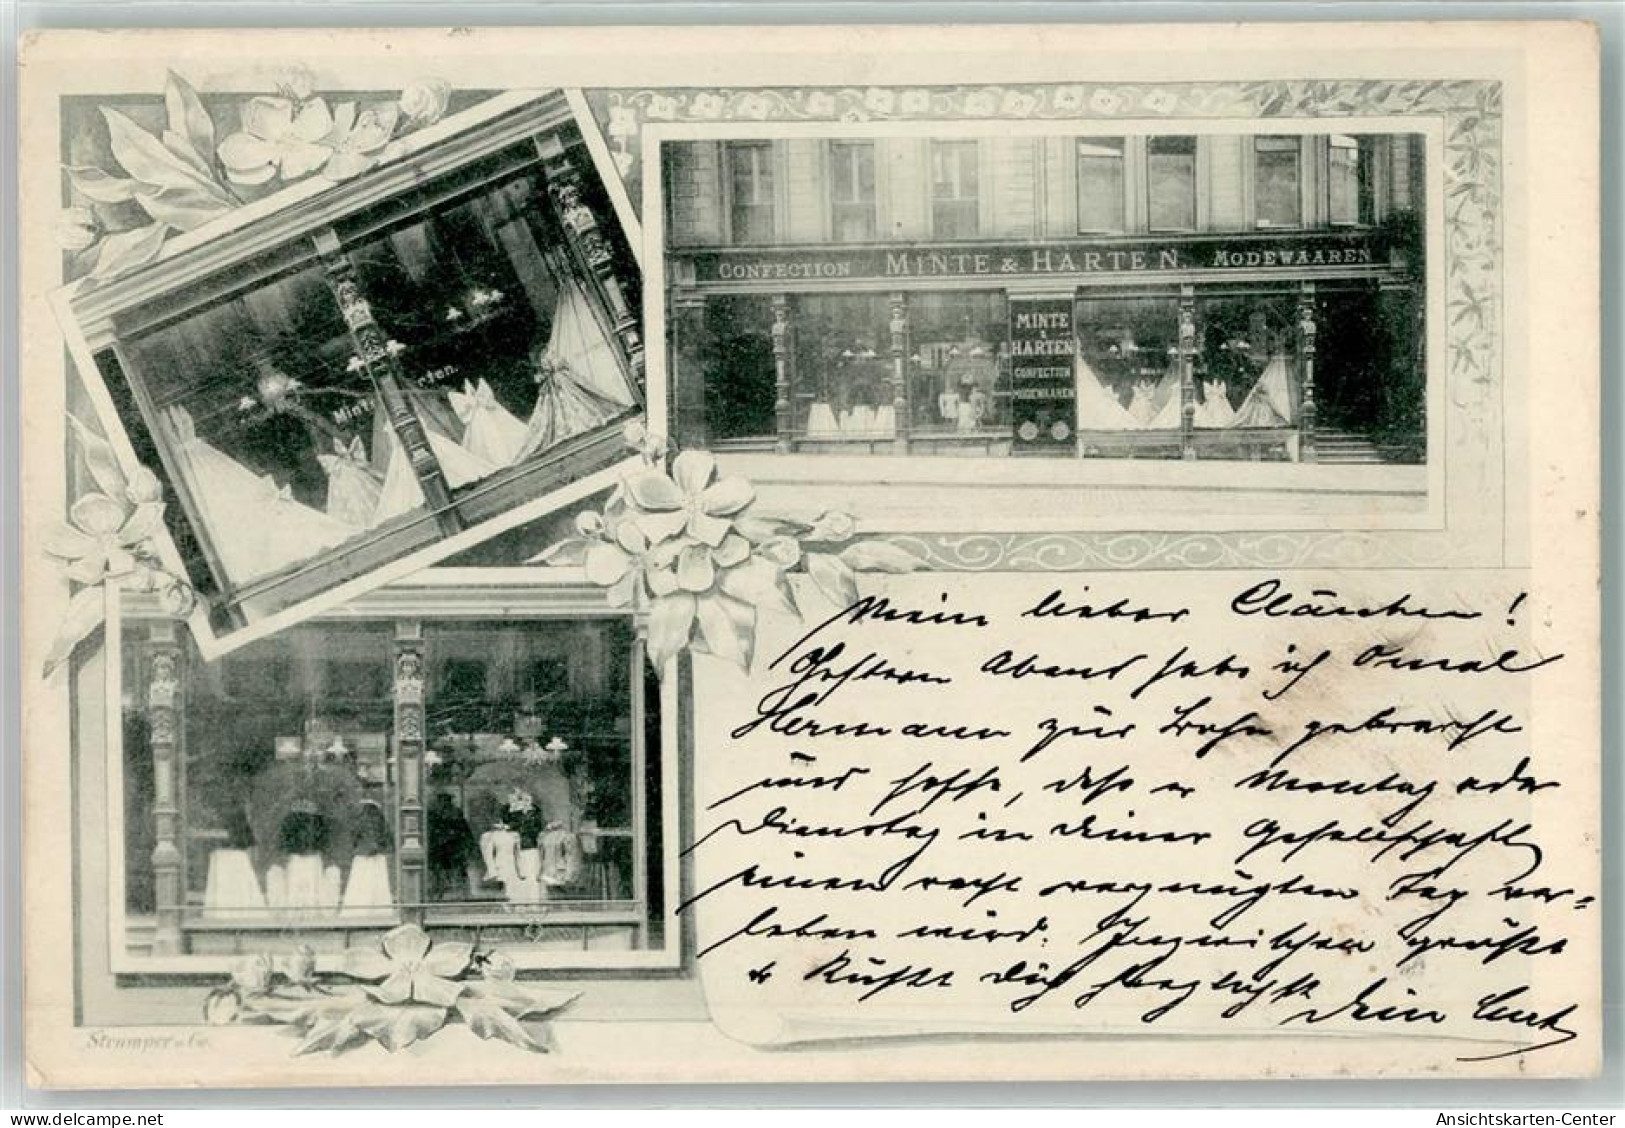 CONFECTION MINTE & HARTEN. MODEWAAREN
MINTE
&
HARTEN
CONFECTION
MODEWAAREN
Minte
rten.
Mein lieber Clärchen!
Gestern Abend habe ich Onkel
Hermann zür Bahn gebracht
und hoffe, daß er Montag oder
Dienstag in Deiner Gesellschaft
einen recht vergnügten Tag ver=
leben wird. Inzwischen grüßt
& küßt Dich herzlichst Dein Curt
Strumper & Co.
delcampe.net
kapede
Ansichtskarten-Center